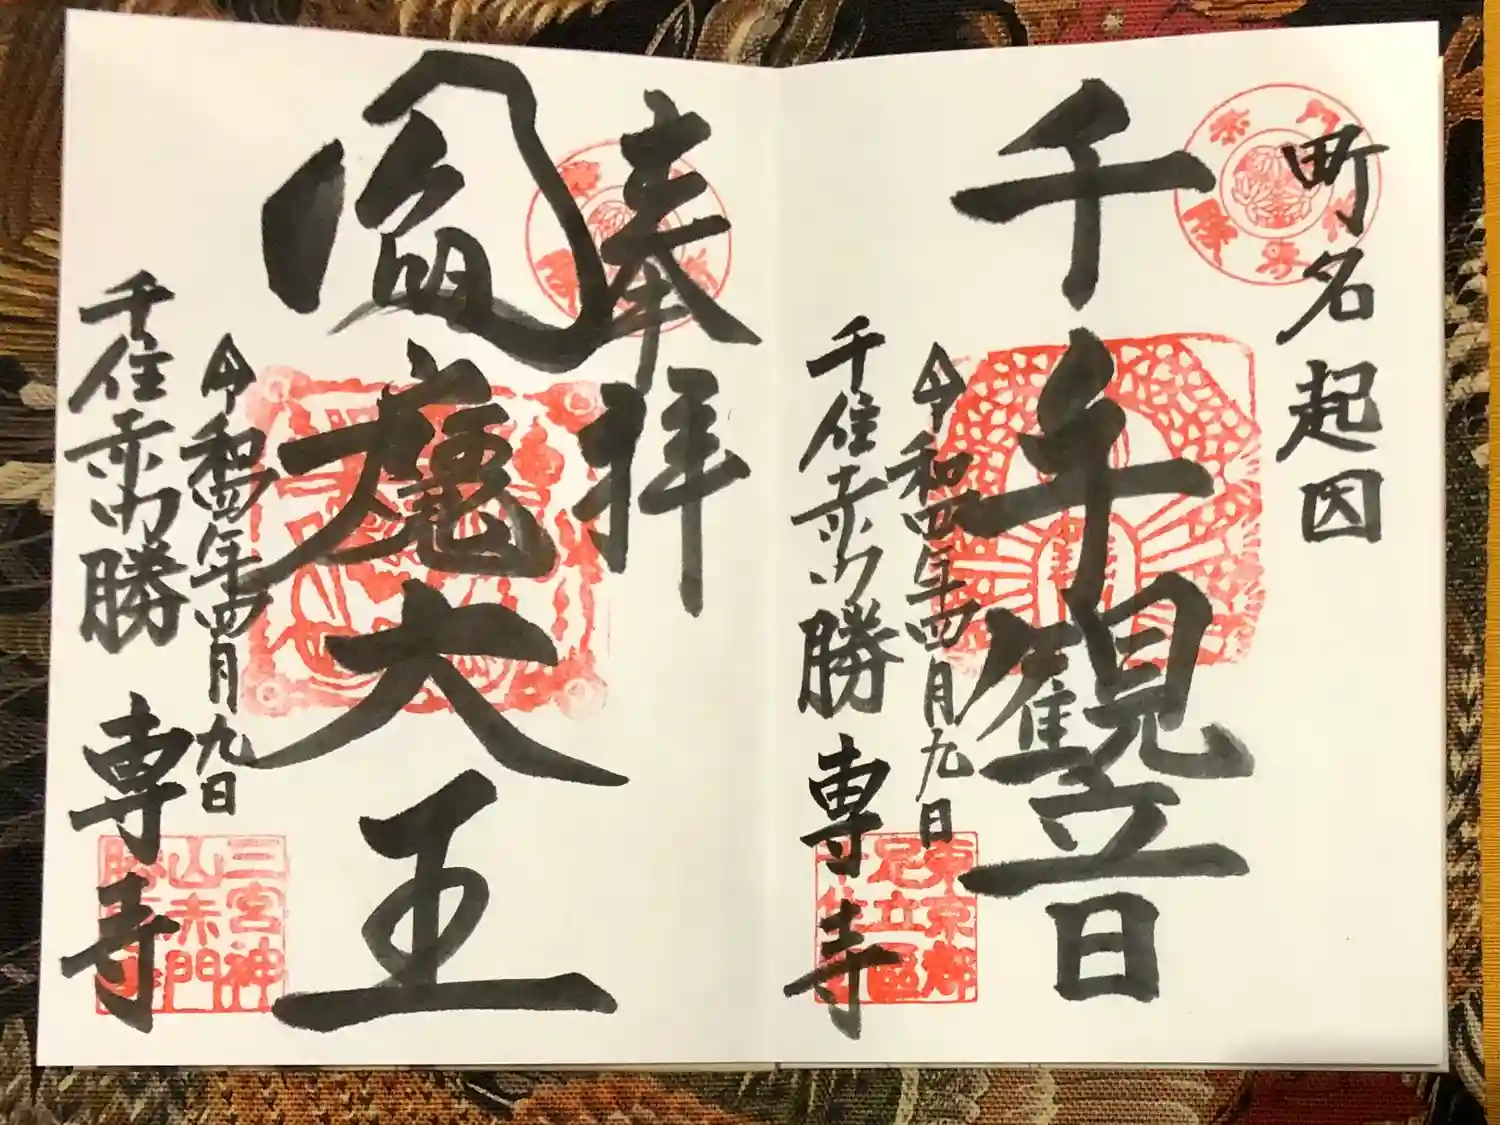 町名起因
千手観音
令和四年四月九日
千住赤門勝専寺
東京都
足立區
奉拝
閻魔大王
令和四年四月九日
千住赤門勝専寺
三宮神
山赤門